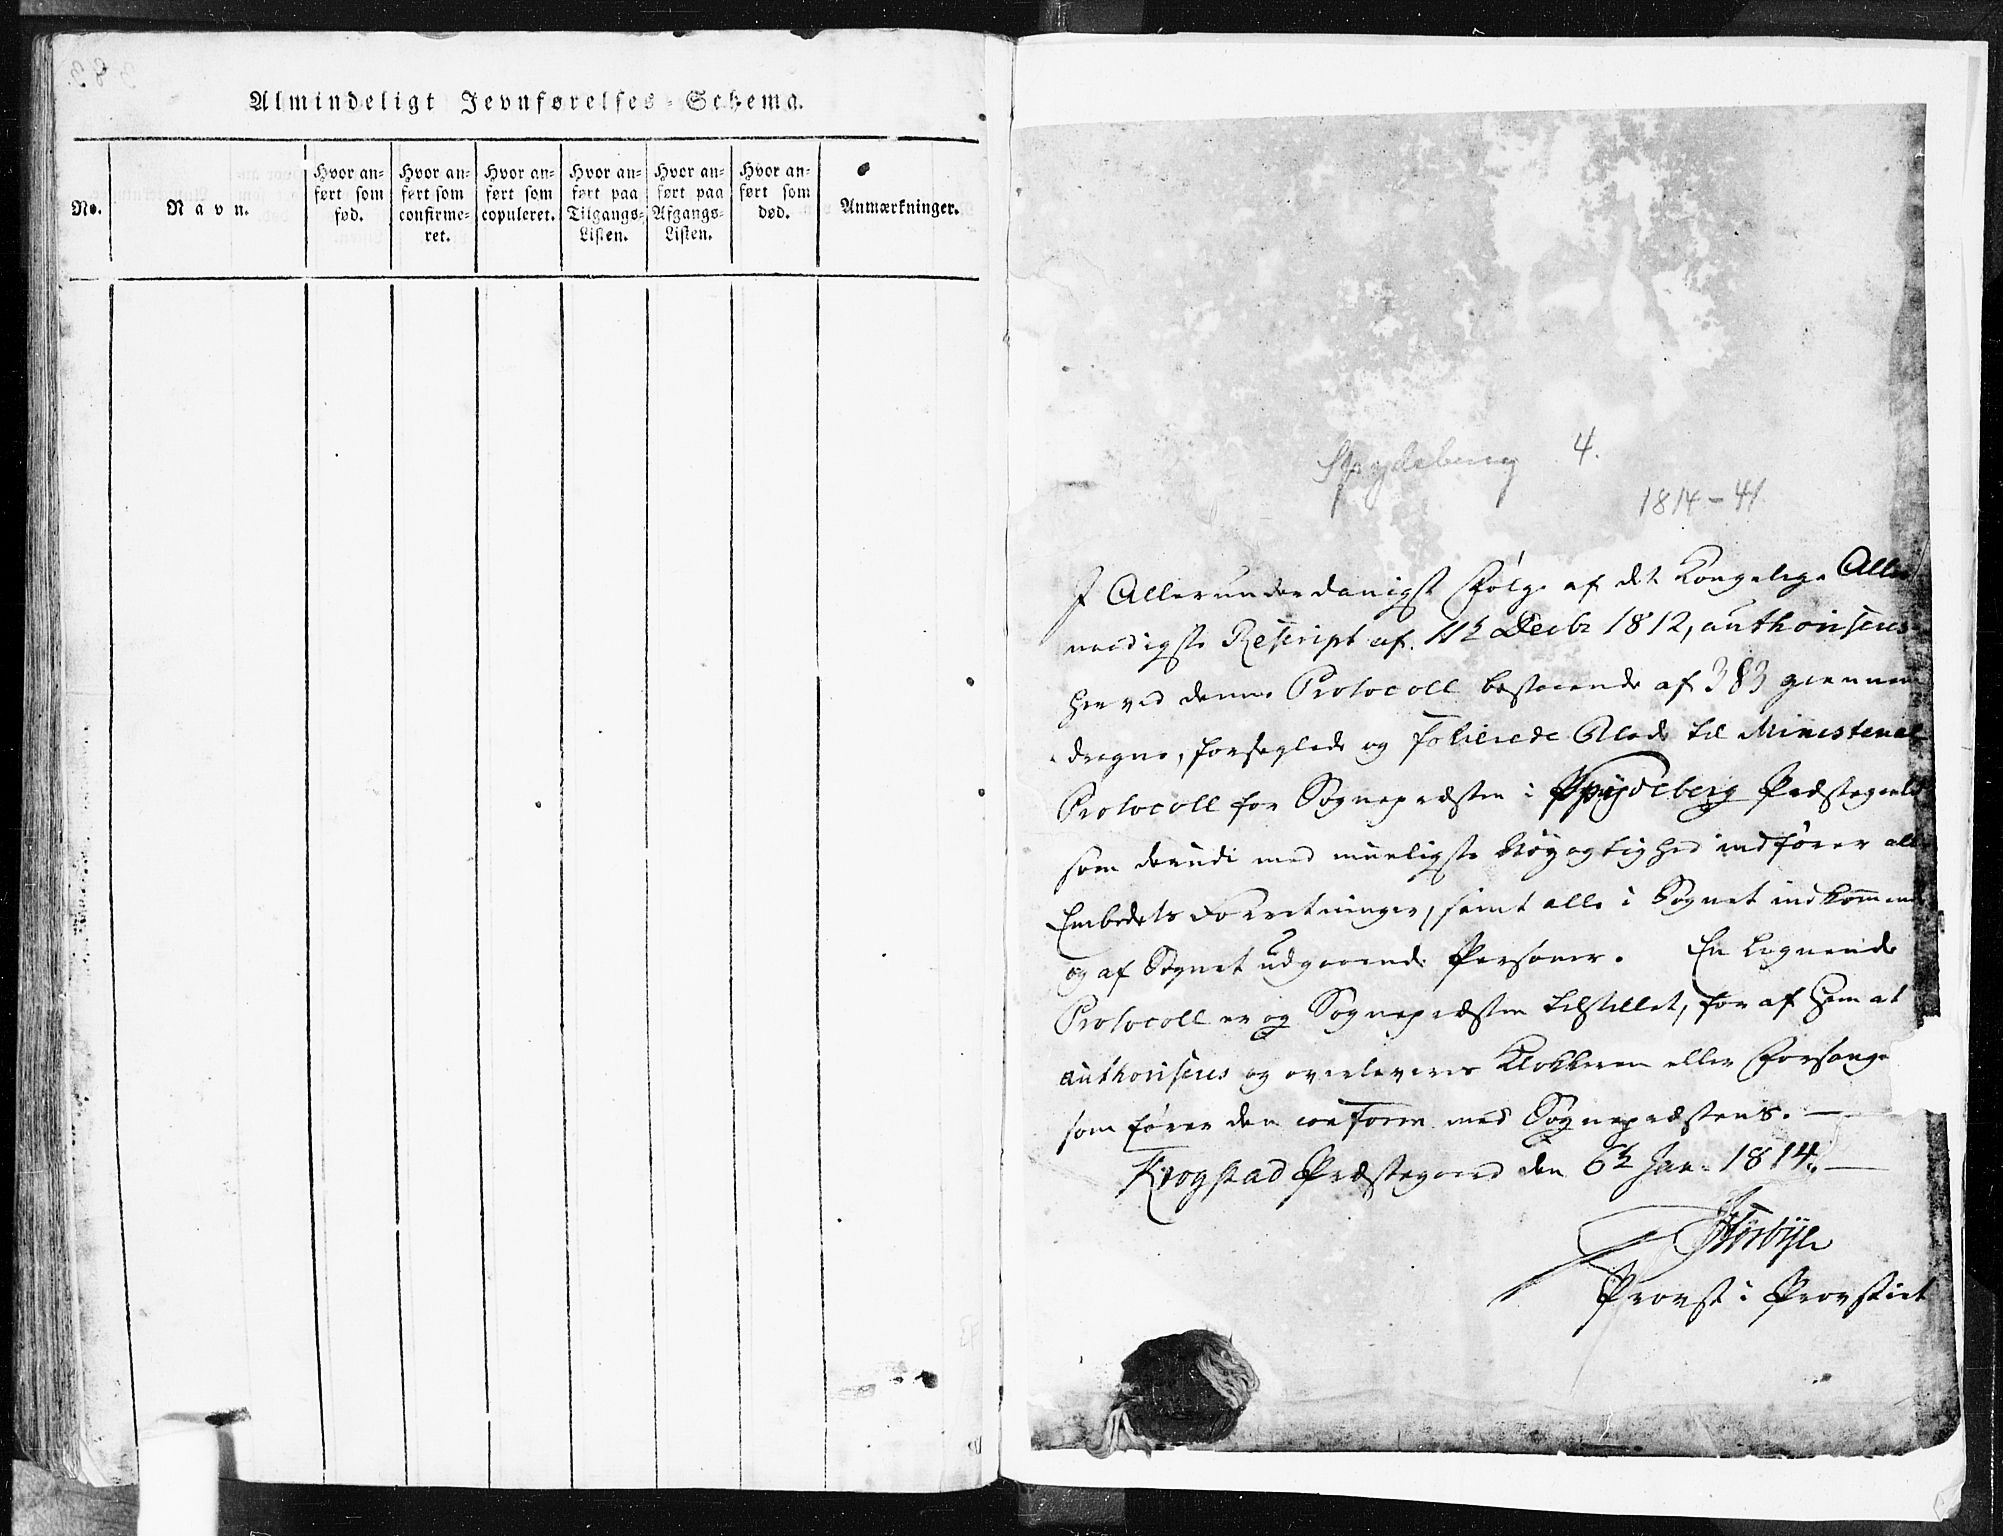 Almindeligt Jevnførelses-Schema.
No.
Navn.
Hvor an-
ført som
fød.
Hvor an-
ført som
confirme-
ret.
Hvor an-
ført som
copuleret.
Hvor an-
ført paa
Tilgangs-
Listen.
Hvor an-
ført paa
Afgangs-
Listen.
Hvor an-
ført som
død.
Anmærkninger.
Spydeberg 4.
1814-41
I Allerunderdanigst Følge af det Kongelige Aller
naadigste Rescript af 11te Decbr 1812, authoriseres
herved denne Protocoll bestaaende af 383 giennem
dragne, forseglede og folierede Blade til Ministerial
Protocoll for Sognepræsten i Spydeberg Præstegield
som derudi med mueligste Nøyagtighed indfører alle
Embedets Forretninger, samt alle i Sognet indkommende
og af Sognet udgaaende Personer. En lignende
Protocoll er og Sognepræsten tilstillet, for af ham at
authoriseres og overleveres Klokkeren eller Forsanger
som fører den conform med Sognepræstens. —
Krogstad Præstegaard den 6te Jan. 1814. —
Provst i Provstiet